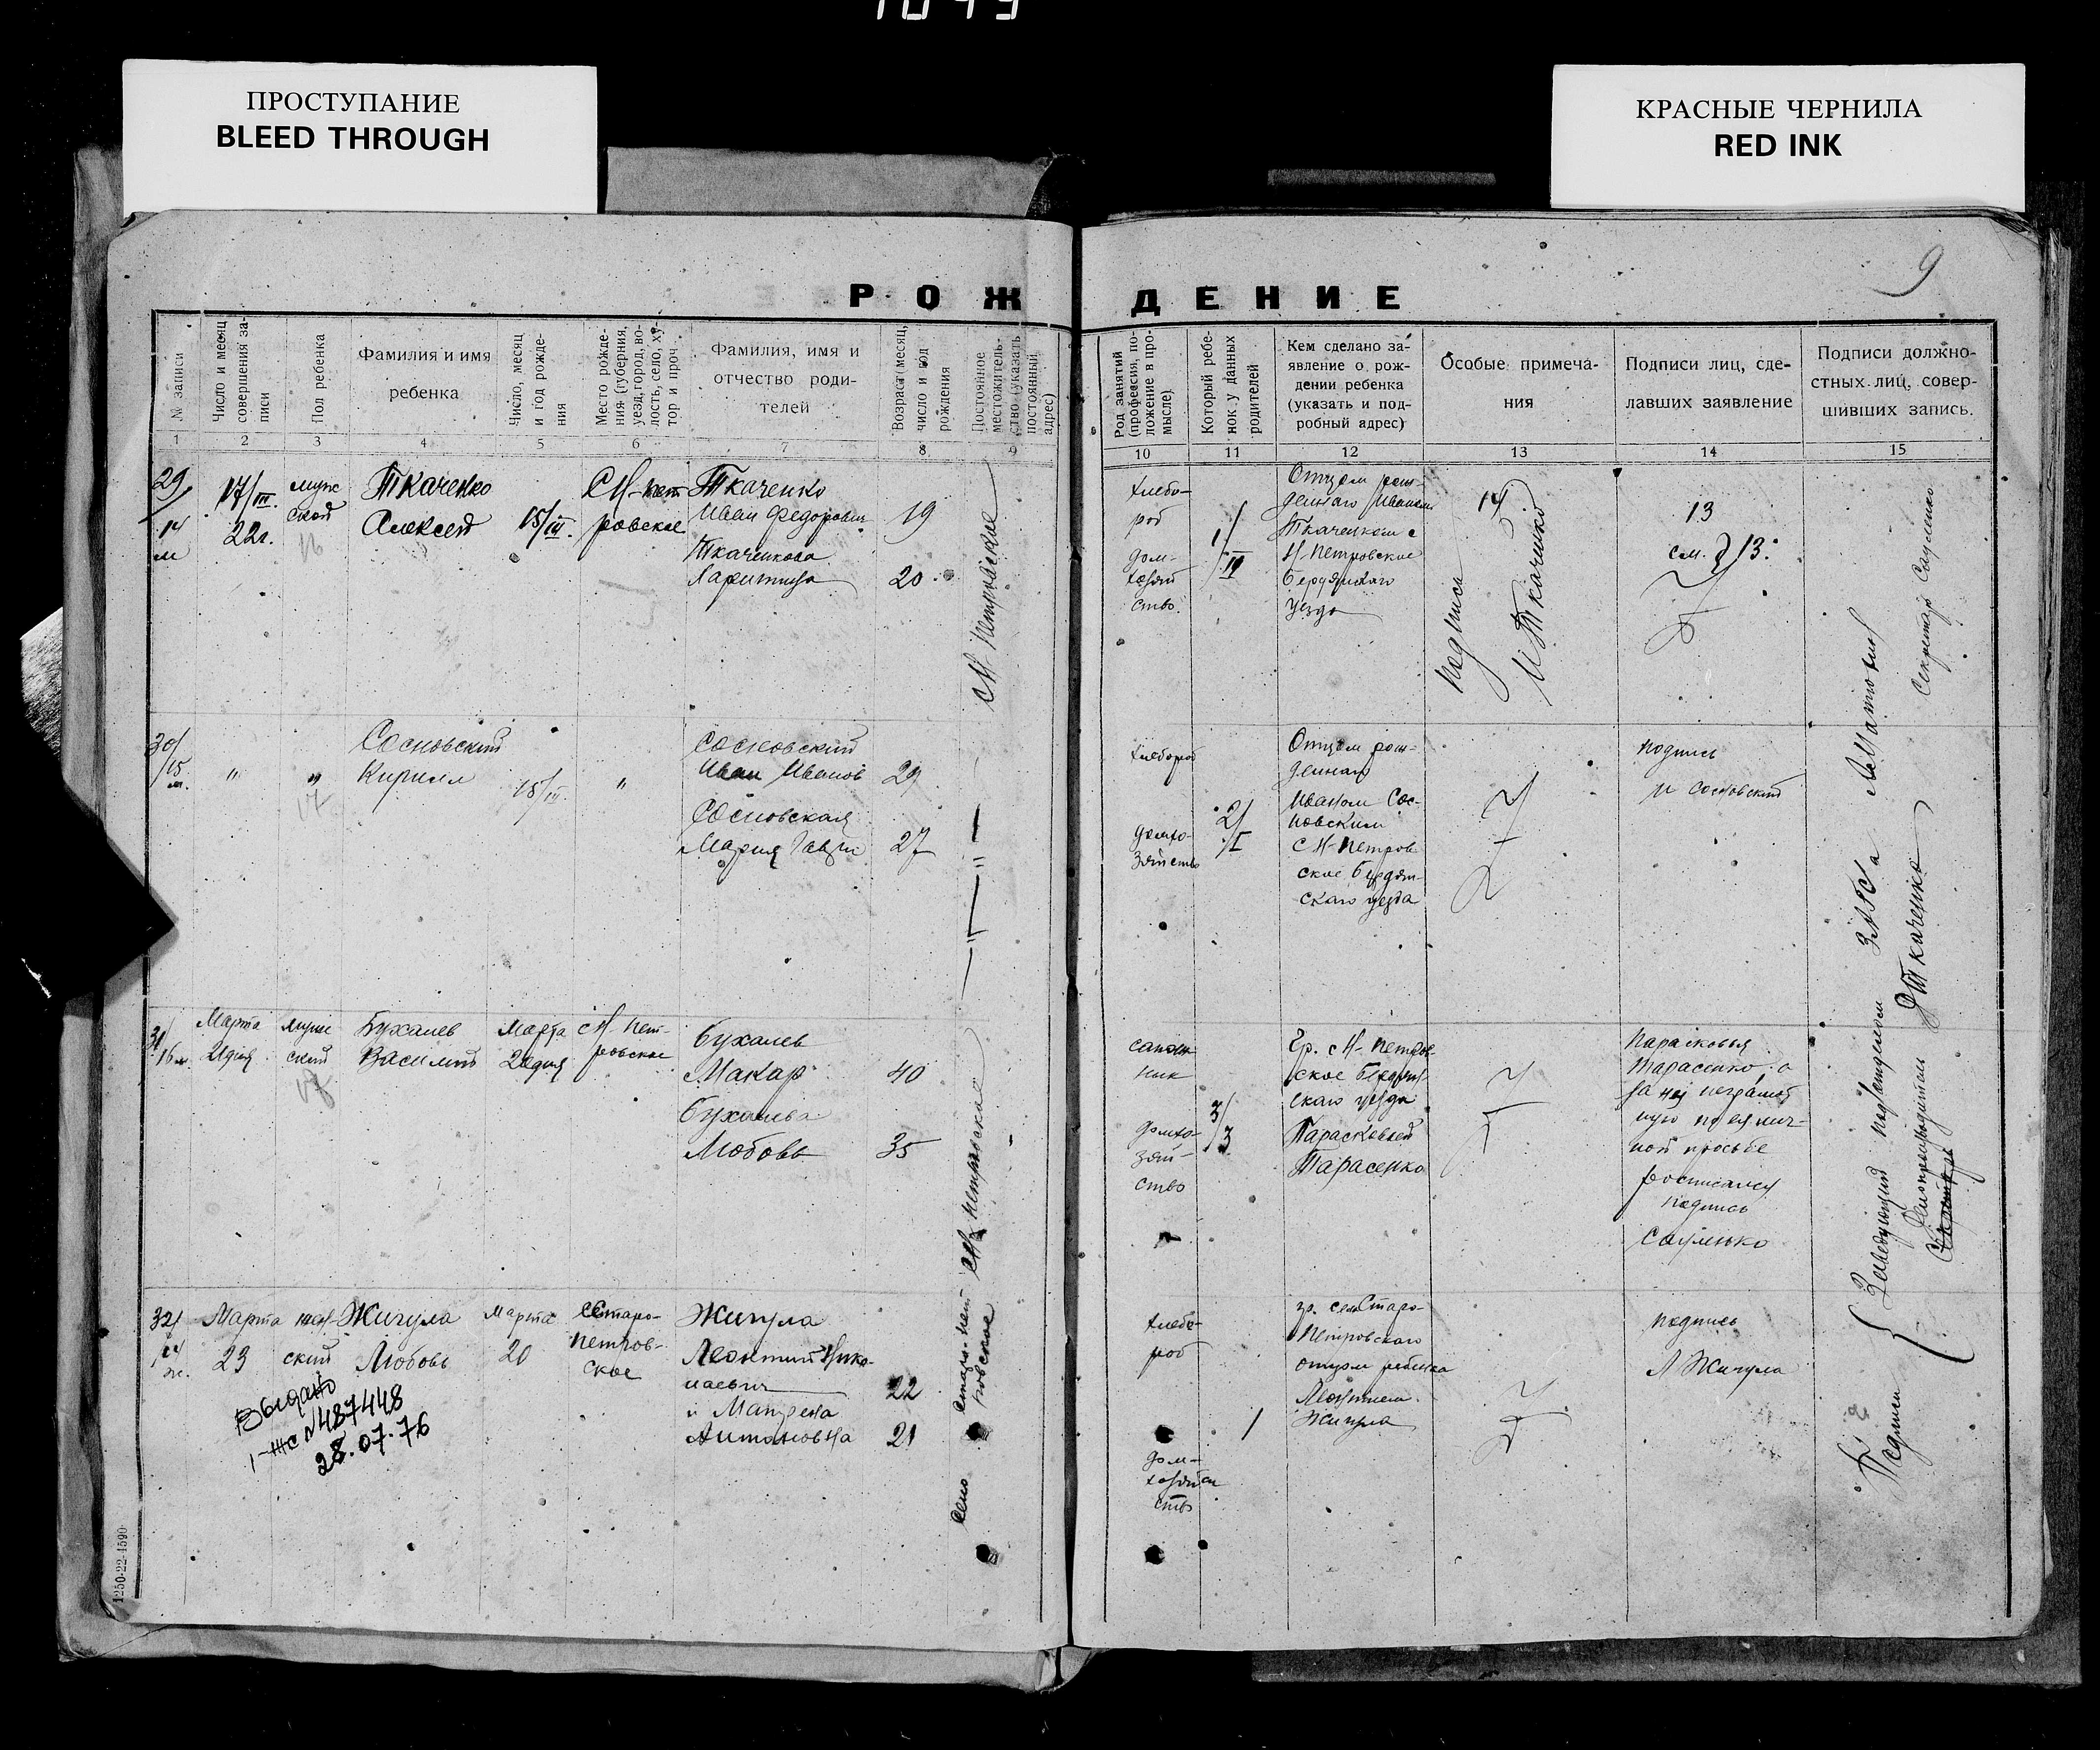 ПРОСТУПАНИЕ
BLEED THROUGH
КРАСНЫЕ ЧЕРНИЛА
RED INK
9
РОЖ
ДЕНИЕ
№ записи
Число и месяц совершения за-
писи
Пол ребенка
Фамилия и имя
ребенка
Число, месяц
и год рожде-
ния
Место рожде-
ния (губерния,
уезд, город, во-
лость, село, ху-
тор и проч.
Фамилия, имя и
отчество роди-
телей
Возраст (месяц,
число и год
рождения
Постоянное
местожитель-
ство (указать
постоянный
адрес)
Род занятий
(профессия, по-
ложение в про-
мысле).
Который ребе-
нок у данных
родителей
Кем сделано за-
явление о рож-
дении ребенка
(указать и под-
робный адрес)
Особые примеча-
ния
Подписи лиц, сде-
лавших заявление
Подписи должно-
стных лиц, совер-
шивших запись.
1 2 3 4 5 6 7 8 9
10 11 12 13 14 15
29/
14
м
17/III.
22г.
муж
ской
16
Ткаченко
Алексей
15/III.
С Н-пет
ровское
Ткаченко
Иван Федорович
19
Ткаченкова
20
с Н-Петровское
хлебо-
род
дом-
хозяй
ство.
1/
II
Отцом рож-
деннаго Иваном
Ткаченком с
Н-Петровское
Бердянскаго
уезда
14
подпись
И Ткаченко
13
см. 13.
30/
15
м.
"
"
17
Сосновский
Кирилл
15/III.
"
Сосновский
Иван Иванов
29
Сосновская
Мария
27
хлебороб
домхо-
зяйство
2/
I
Отцом рож-
деннаго
Иваном Сос-
новским
с Н-Петров
ское Бердян-
скаго уезда
подпись
И Сосновский
31/
16 м.
Марта
21 дня
муж
ский
Бухалев
Василий
Марта
20 дня
с Н. Пет-
ровское
Бухалев
Макар
40
Бухалева
Любовь
35
с Н Петровское
сапож
ник
домхо-
зяй-
ство
3/
3
Гр. с Н-Петров
ское Бердян-
скаго уезда
Парасковьей
Тарасенко
Парасковья
Тарасенко, а
за ней неграмот
ную по ея лич-
ной просьбе
росписался
подпись
Сауленко
32/
ж.
Марта
23
жен-
ский
Жигула
Любовь
Марта
20
Старо-
петров-
ское
Жигула
Леонтий Нико-
лаевич
22
и Матрена
Антоновна
21
Село Старо-пет
ровское
хлебо-
род
дом-
хозяйст
ство
1
гр. села Старо-
Петровскаго
отцом ребенка
Леонтием
Жигула
подпись
Л Жигула
Выдано
I-ЖС №487448
28.07.76
Подписи
{ Заведующий подотделом ЗАГСа
Делопроизводитель
Ткаченко
Секретарь Сауленко
1250-22-4590